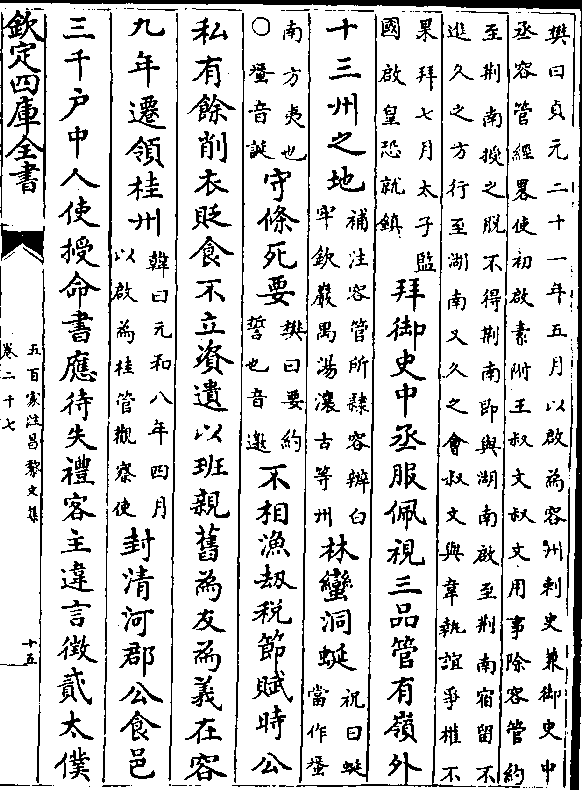 樊曰貞元二十一年五月以啟為容州刺史兼御史中
丞容管經畧使初啟素附王叔文叔文用事除容管約
至荆南授之脱不得荆南即與湖南啟至荆南宿留不
進久之方行至湖南又久之會叔文與韋執誼爭權不
果拜七月太子監
國啟皇恐就鎮
拜御史中丞服佩視三品管有嶺外
十三州之地
補注容管所隸容辨白
牢欽巖禺湯瀼古等州
林蠻洞蜒
祝曰蜒
當作蜑
南方夷也
○蜑音誕
守條死要
樊曰要約
誓也音邀
不相漁刼税節賦時公
私有餘削衣貶食不立資遺以班親舊為友為義在容
九年遷領桂州
韓曰元和八年四月
以啟為桂管觀察使
封清河郡公食邑
三千户中人使授命書應待失禮客主違言徵貳太僕
欽定四庫全書
五百家注昌黎文集
卷二十七
十五